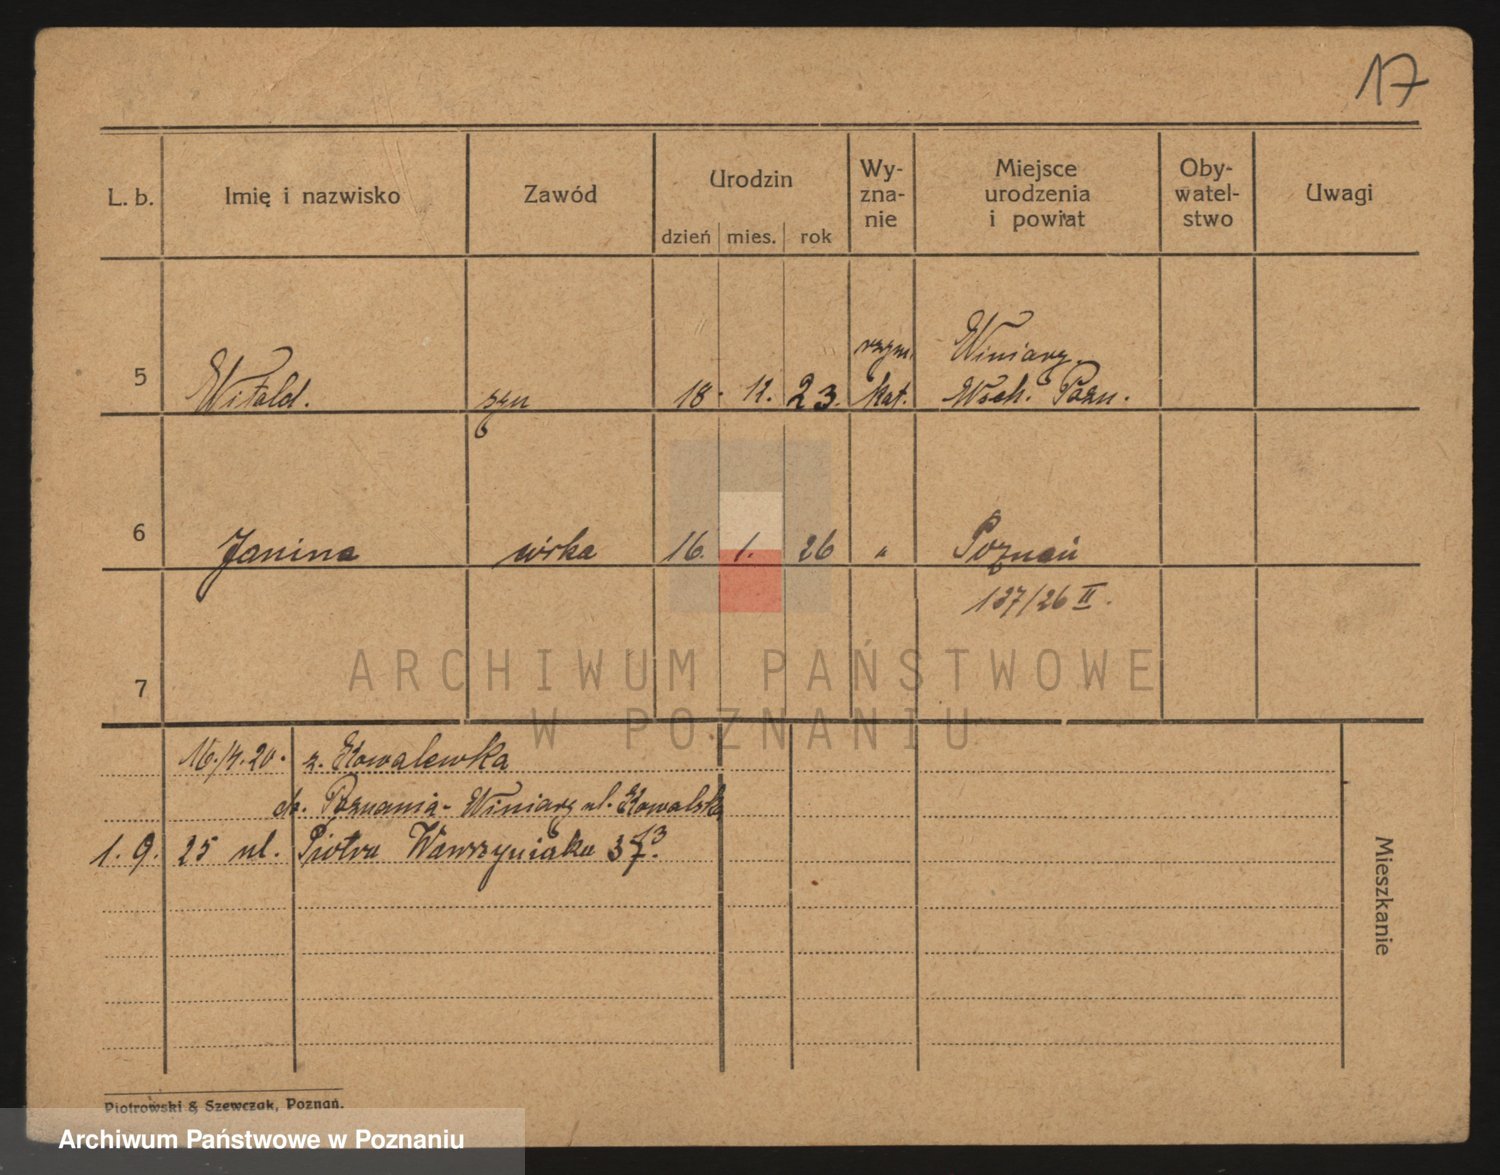 17
L. b. Imię i nazwisko Zawód Urodzin Wy- Miejsce Oby- Uwagi
zna- urodzenia watel-
nie i powiat stwo
dzień mies. rok
rzym. Winiary
5 Witold. syn 18. 12. 23. kat. Wsch. Pozn.
6 Janina córka 16. 1. 26 " Poznań
137/26 II.
7
ARCHIWUM PAŃSTWOWE
W POZNANIU
16./4. 20. z. Kowalewka
do. Poznania - Winiary ul. Kowalska
1. 9. 25 ul. Piotra Wawrzyniaka
Mieszkanie
Piotrowski & Szewczak, Poznań.
Archiwum Państwowe w Poznaniu